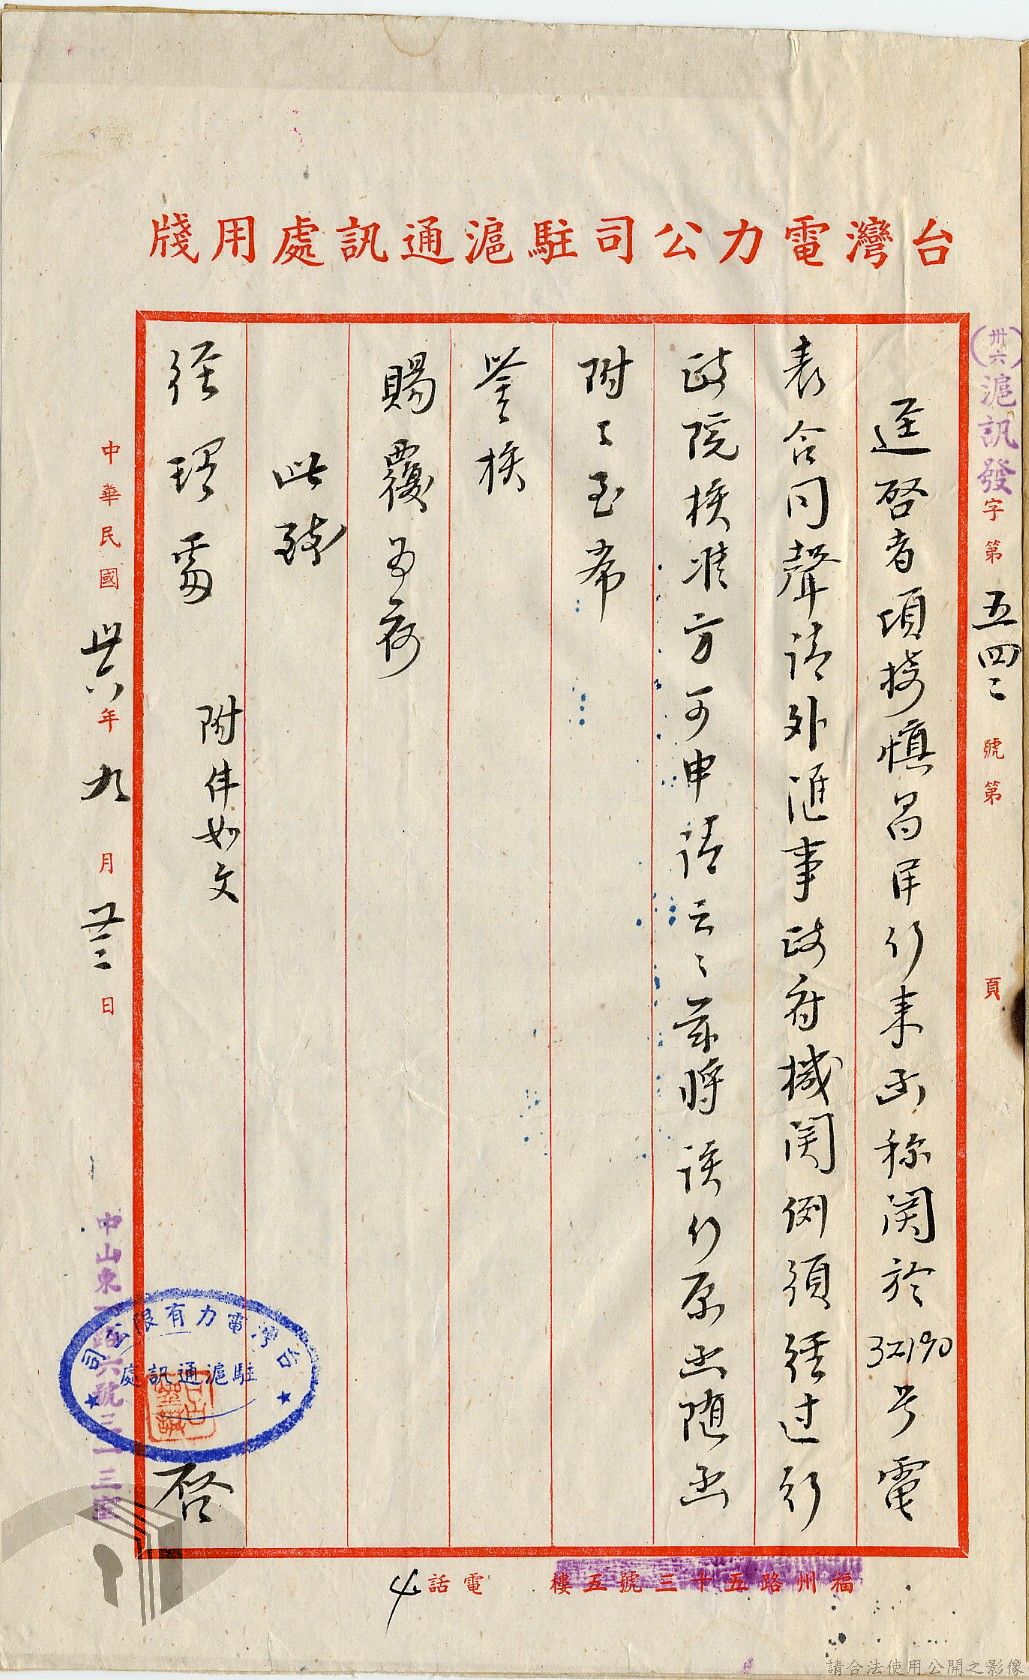 台灣電力公司駐滬通訊處用牋
(卅六)滬訊發字第五四二號第 頁
逕啓者頃接慎昌洋行来函称関於32190号電
表合同聲请外滙事政府機関例須經过行
政院核准方可申请云云茲将该行原函随函
附上至希
詧核
賜覆為荷
此致
經理室
附件如文
台灣電力有限公司
駐滬通訊處
啓
中華民國卅六年九月廿三日
中山東一路六號三一三室
福州路五十三號五樓 電話
請合法使用公開之影像